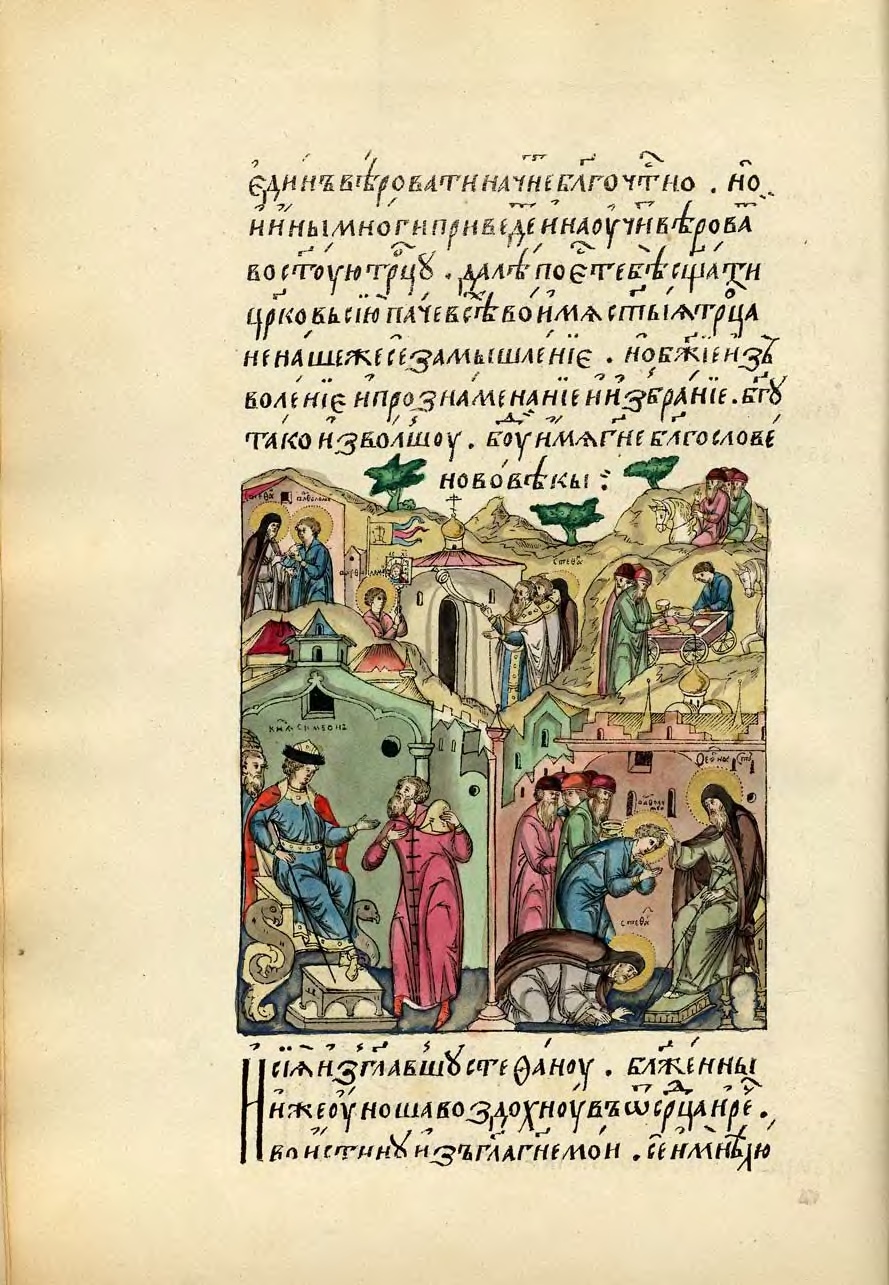 є҆ди́нъ вѣ́ровати начне́ бл҃гоче҇тно . но
и҆ и҆ны мно́ги приведе́ и҆ наоучи́ вѣ́рова
во ст҃оую тр҃цꙋ . да лѣ́по є҆ тебѣ̀ сщ҃ати
цр҃ковь сїю̀ паче всѣ́х во и҆мѧ ст҃ыѧ тро́ца
не на́ше же сѐ замышле́нїє . но бж҃їе и҆зъ
воле́нїє и҆ прозна́менанїе и҆ и҆збра́нїе . бг҃ꙋ
тако и҆зво́лшоу . бо́уди и҆мѧ гн҇е бл҃гослове
но во́ вѣ́кы :
стефа
кн҃ѕ . симеонъ
стефа
стефа
Сїѧ̀ и҆згл҃авшꙋ стефа́ноу . бл҃же́нны
и҆ же о҆у́ноша воздохноу́въ ѿ се́рдца и҆ ре́ .
во и҆́стинꙋ и҆зъ гл҃а гн҇е мо́и . се́ и҆ мнѣ́ лю